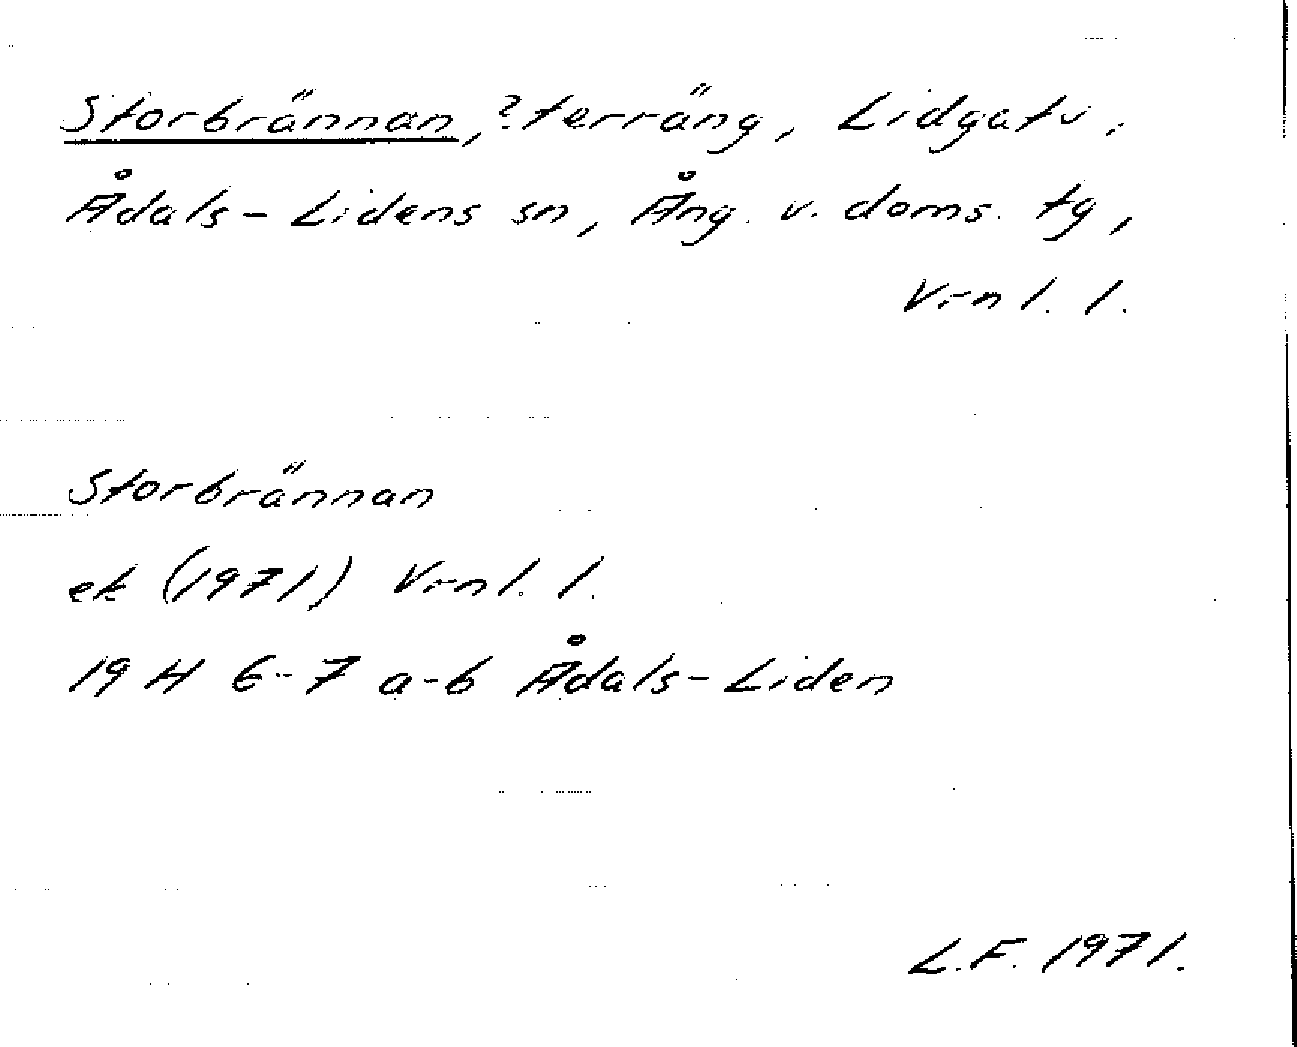 Storbrännan, ?terräng, Lidgatu,
Ådals-Lidens sn, Ång. v. doms. tg,
Vrnl. l.
Storbrännan
ek (1971) Vrnl. l.
19 H 6-7 a-b Ådals-Liden
L.F. 1971.